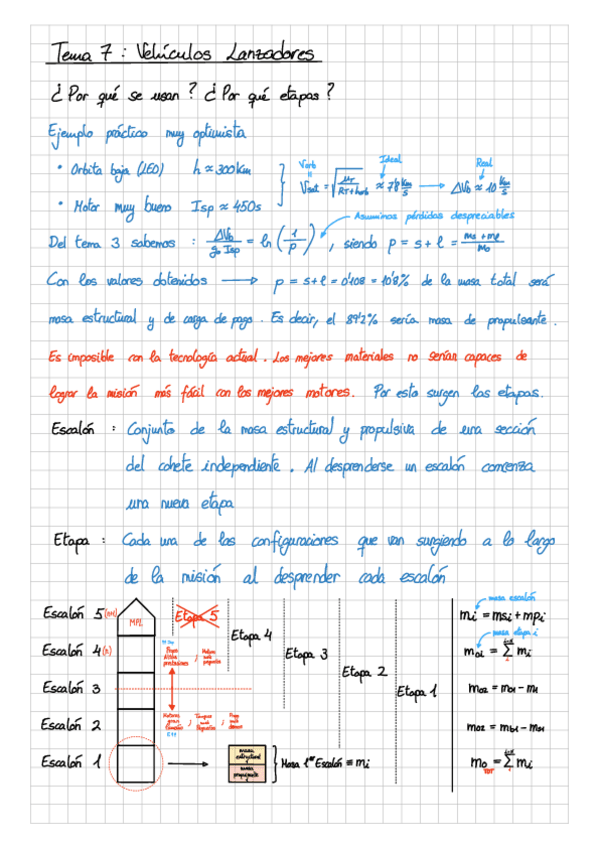 Tema 7 : Vehículos Lanzadores
¿Por qué se usan? ¿Por qué etapas?
Ejemplo práctico muy optimista
• Orbita baja (LEO) h ≈ 300 km
• Motor muy bueno Isp ≈ 450s
Ideal
Real
→ ΔV₀ ≈ 10 km/s
Asumimos pérdidas despreciables
Del tema 3 sabemos : ΔV₀/(g₀ Isp) = ln(1/p), siendo p = s + l = (ms + ml)/m₀
Con los valores obtenidos → p = s+l = 0'108 = 10'8% de la masa total será
masa estructural y de carga de pago. Es decir, el 89'2% sería masa de propulsante.
Es imposible con la tecnología actual. Los mejores materiales no serían capaces de
lograr la misión más fácil con los mejores motores. Por esto surgen las etapas.
Escalón : Conjunto de la masa estructural y propulsiva de una sección
del cohete independiente. Al desprenderse un escalón comienza
una nueva etapa
Etapa : Cada una de las configuraciones que van surgiendo a lo largo
de la misión al desprender cada escalón
Escalón 5 (n+1)
MPL
Etapa 5
Escalón 4 (n)
Etapa 4
Escalón 3
Etapa 3
Escalón 2
Etapa 2
Escalón 1
Etapa 1
masa estructural
masa propulsante
Masa 1er Escalón ≡ mi
masa escalón
mi = msi + mpi
masa etapa i
m0i = Σ mi
m02 = m01 - m1
m0 TOT = Σ mi